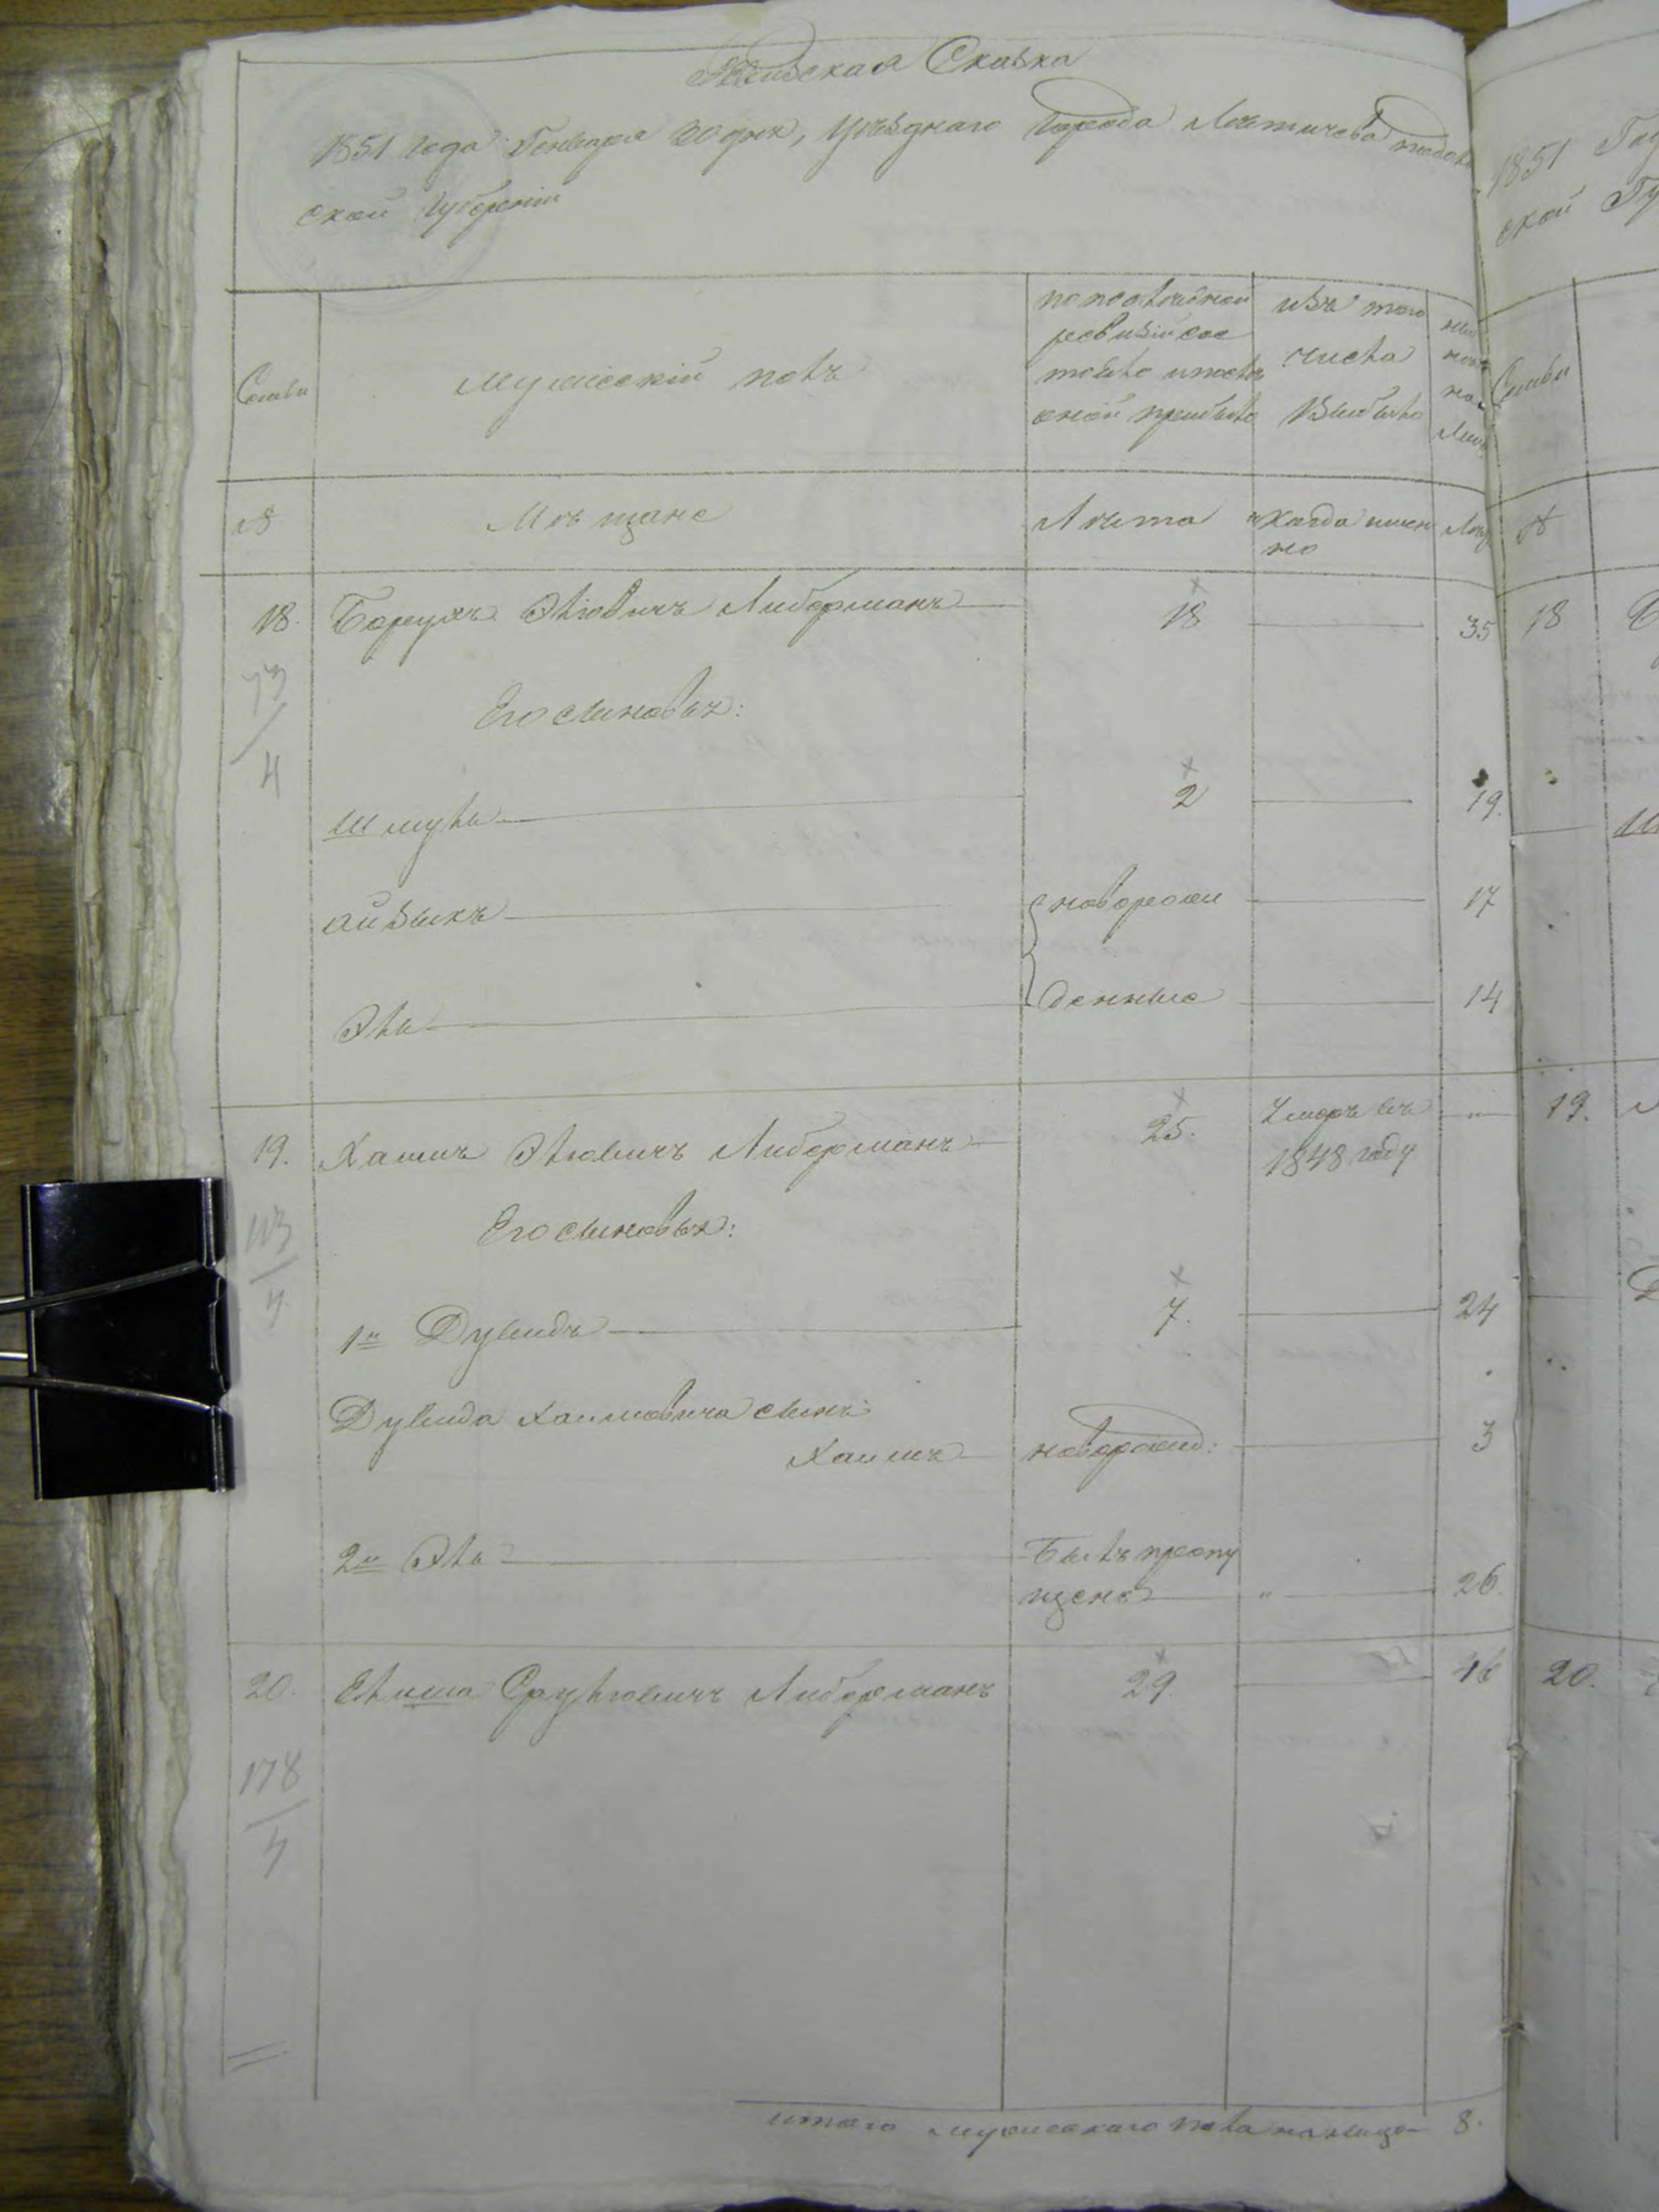 Ревизская Сказка
1851 года Генваря 30 дня, Уезднаго Города Летичева Подоль
ской Губернiи
Семьи
Мужескiй полъ
по последней
ревизiи сос
тояло и после
оной прибыло
изъ того
числа
Выбыло
Семьи
№
Мѣщане
Лѣта
Когда имен
но
Лѣта
№
18.
Борухъ Элiовичъ Либерманъ
18
35
18
73/4
Его сыновья:
Шмуль
2
19.
Айзыкъ
новорож
17
Эль
денные
14
19.
Хаимъ Элiовичъ Либерманъ
25.
Умеръ въ
1848 году
"
19.
113/4
Его сыновья:
1й Дувидъ
7.
24
Дувида Хаимовича сынъ:
Хаимъ
новорожд:
3
2й Эль
Былъ пропу
щенъ
"
26.
20.
Елиша Срулiовичъ Либерманъ
29.
46
20.
178/4
итого мужескаго пола на лицо
8.
1851
ской